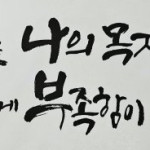 나의 목자
게 부족함이